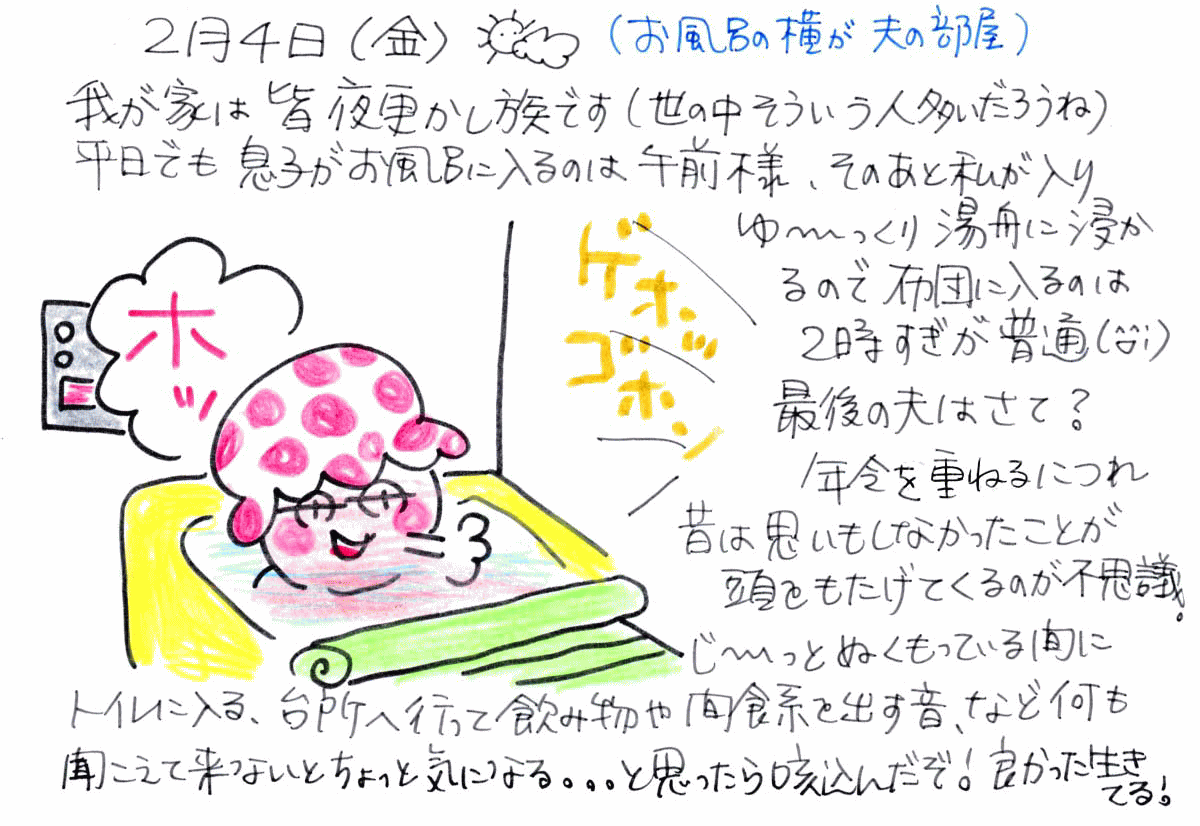 2月4日（金） （お風呂の横が夫の部屋）
我が家は皆夜更かし族です（世の中そういう人多いだろうね）
平日でも息子がお風呂に入るのは午前様、そのあと私が入り
ゆ〜〜っくり湯舟に浸か
るので布団に入るのは
2時すぎが普通(^^;)
最後の夫はさて？
年令を重ねるにつれ
昔は思いもしなかったことが
頭をもたげてくるのが不思議。
じ〜〜っとぬくもっている間に
トイレに入る、台所へ行って飲み物や間食系を出す音、など何も
聞こえて来ないとちょっと気になる...と思ったら咳込んだぞ！良かった生き
てる！
ホッ
ゲホッ
ゴホン